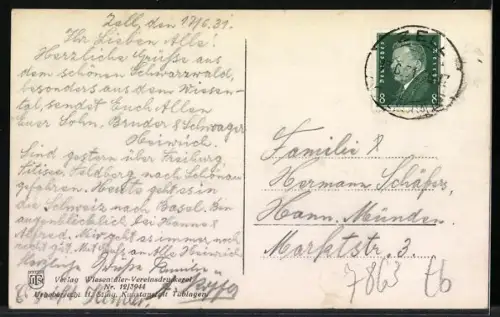 Zell, den 17/6.31.
Ihr Lieben Alle!
Herzliche Grüße aus
dem schönen Schwarzwald,
besonders aus dem Wiesen-
tal, sendet Euch Allen
Euer Sohn, Bruder & Schwager
Heinrich.
Sind gestern über Freiburg,
Titisee, Feldberg nach Schönau
gefahren. Heute geht es in
die Schweiz nach Basel. Bin
augenblicklich bei Hanna &
Alfred. Mir geht es immer noch
recht gut. Mit Gruß an Alle Heinrich
Herzliche Grüße
Verlag Wiesentäler-Vereinsdruckerei
Nr. 1213944
Urheberrecht H. Sting, Kunstanstalt Tübingen
DEUTSCHES REICH
8 8
Familie
Hermann Schäfer,
Hann. Münden.
Marktstr. 3.
7863 tb